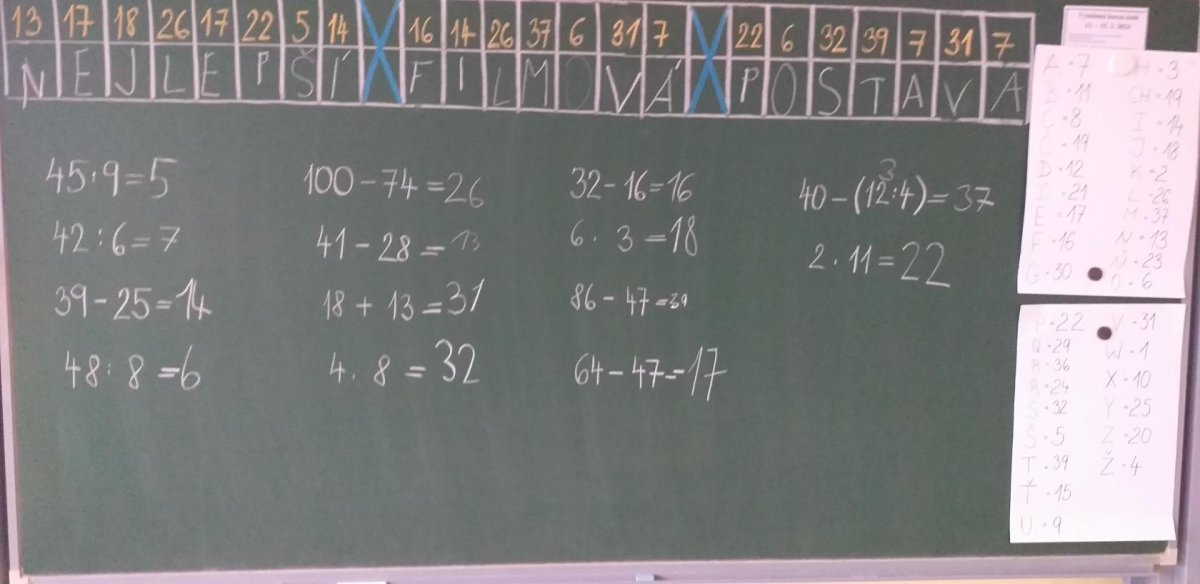 13 17 18 26 17 22 5 14 X 16 14 26 37 6 31 7 X 22 6 32 39 7 31 7
N E J L E P Š Í X F I L M O V Á X P O S T A V A
45:9=5
42:6=7
39-25=14
48:8=6
100-74=26
41-28=13
18+13=31
4.8=32
32-16=16
6.3=18
86-47=39
64-47=17
3
40-(12:4)=37
2.11=22
A・7
B・11
C=8
Č・19
D・12
Ď・21
E・17
F・16
G・30
H・3
CH・19
I・14
J・18
K・2
L・26
M・37
N・13
Ň・23
O・6
P・22
Q・29
R・36
Ř・24
S・32
Š・5
T・39
Ť・15
U・9
V・31
W・1
X・10
Y・25
Z・20
Ž・4